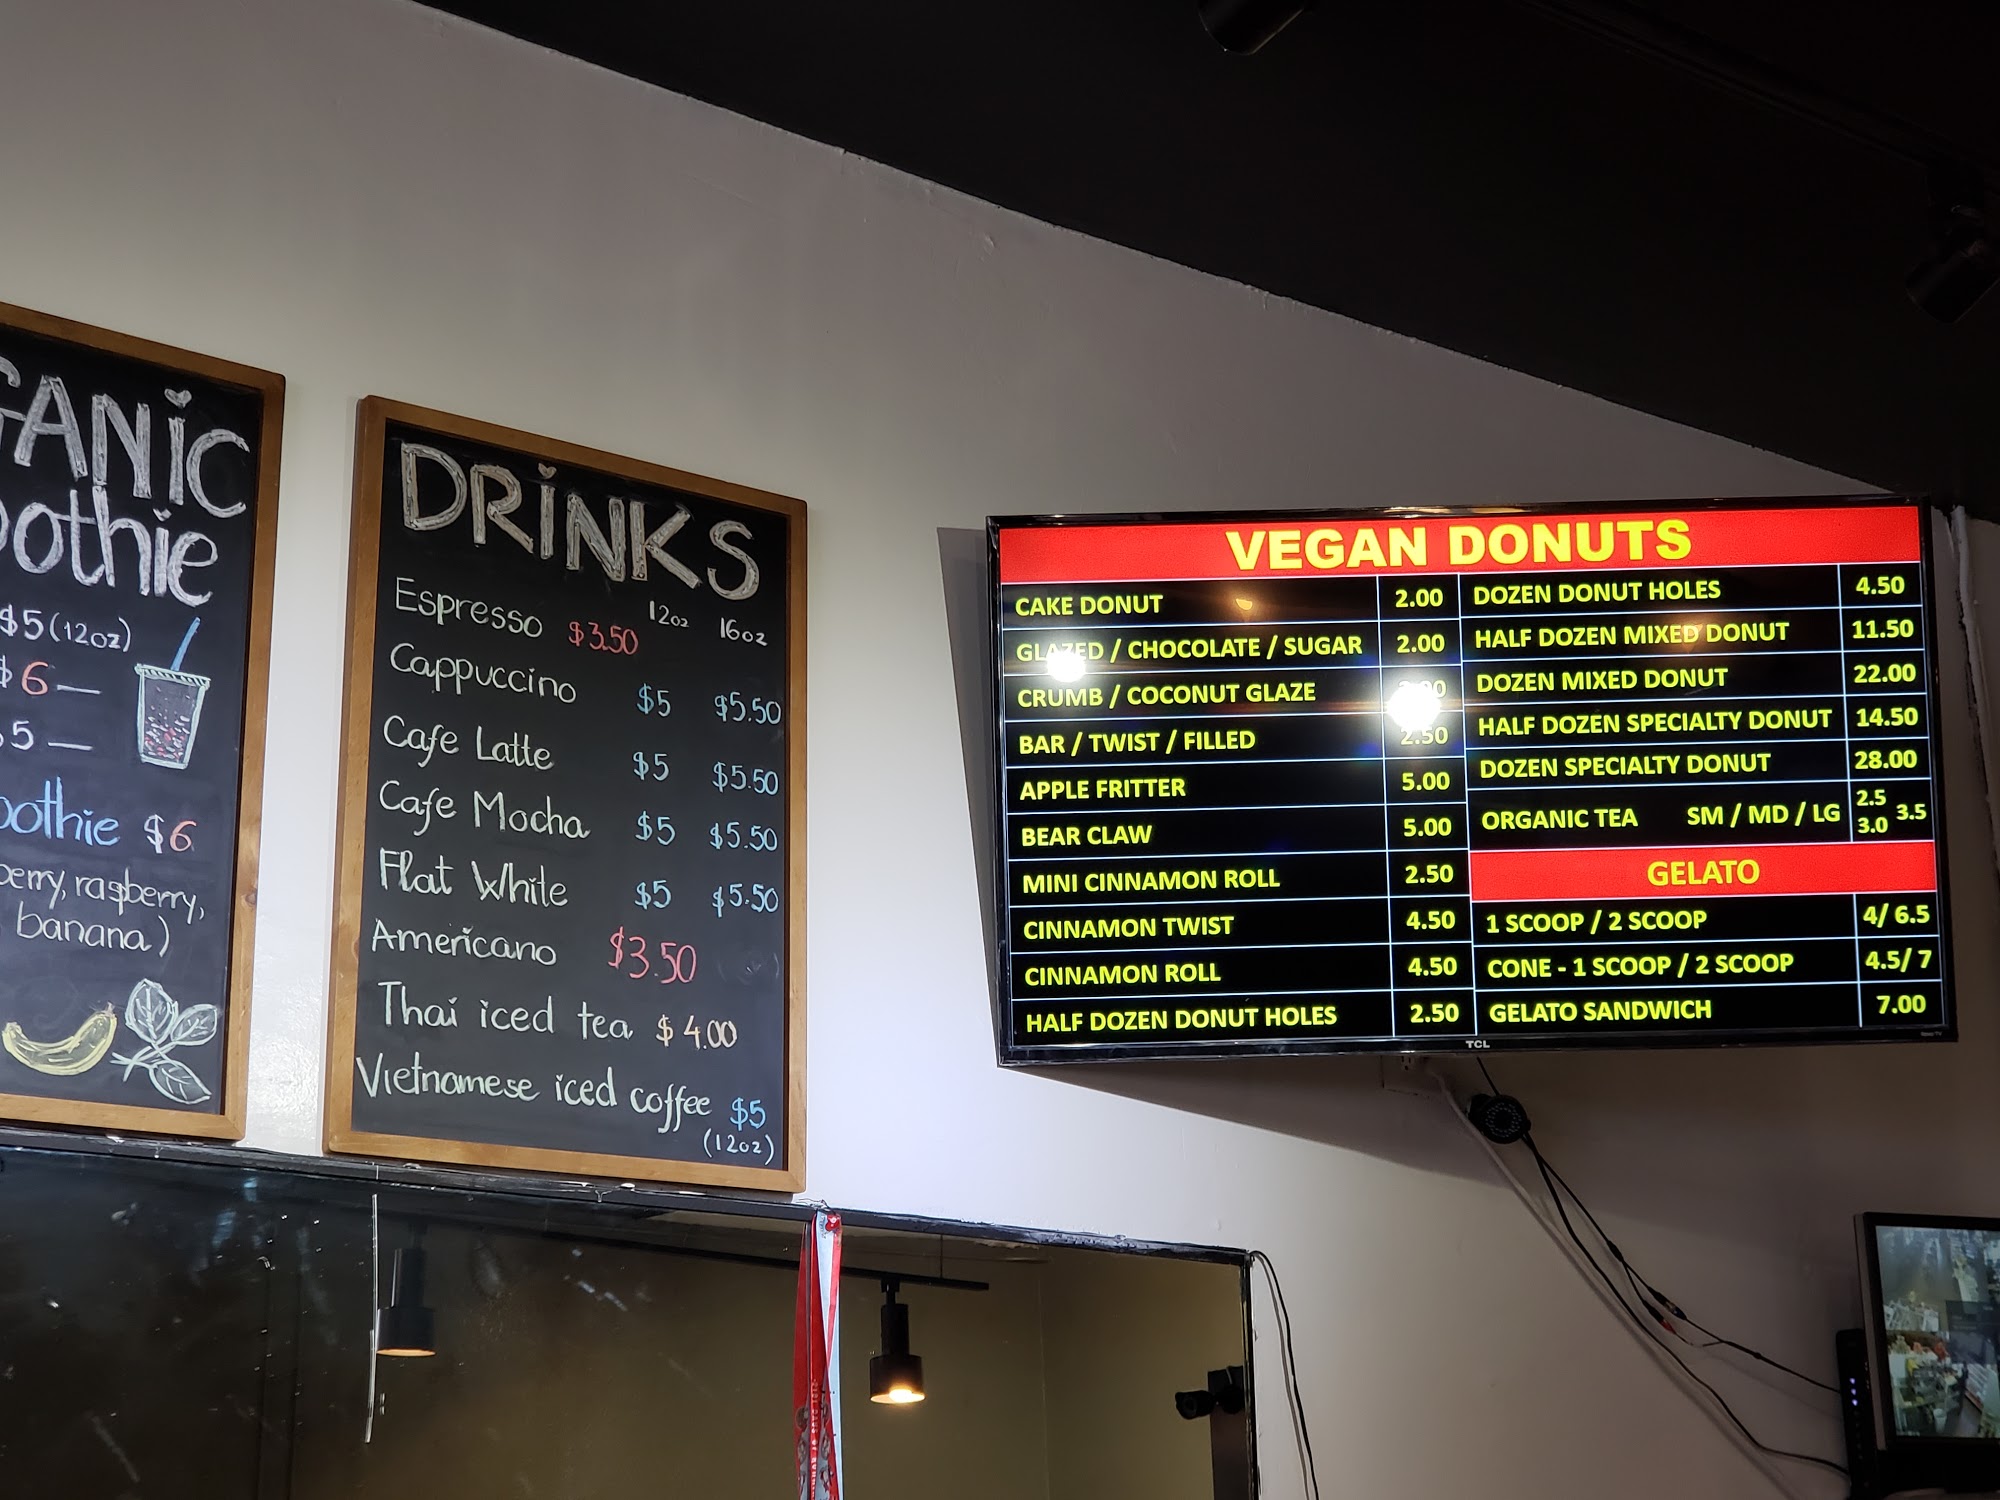 GANIC
oothie
$5 (12oz)
$6 —
5 —
oothie $6
berry, raspberry,
banana)
DRINKS
12oz 16oz
Espresso $3.50
Cappuccino $5 $5.50
Cafe Latte $5 $5.50
Cafe Mocha $5 $5.50
Flat White $5 $5.50
Americano $3.50
Thai iced tea $4.00
Vietnamese iced coffee $5
(12oz)
VEGAN DONUTS
CAKE DONUT 2.00
GLAZED / CHOCOLATE / SUGAR 2.00
CRUMB / COCONUT GLAZE
BAR / TWIST / FILLED 2.50
APPLE FRITTER 5.00
BEAR CLAW 5.00
MINI CINNAMON ROLL 2.50
CINNAMON TWIST 4.50
CINNAMON ROLL 4.50
HALF DOZEN DONUT HOLES 2.50
DOZEN DONUT HOLES 4.50
HALF DOZEN MIXED DONUT 11.50
DOZEN MIXED DONUT 22.00
HALF DOZEN SPECIALTY DONUT 14.50
DOZEN SPECIALTY DONUT 28.00
ORGANIC TEA SM / MD / LG 2.5 3.0 3.5
GELATO
1 SCOOP / 2 SCOOP 4/ 6.5
CONE - 1 SCOOP / 2 SCOOP 4.5/ 7
GELATO SANDWICH 7.00
TCL